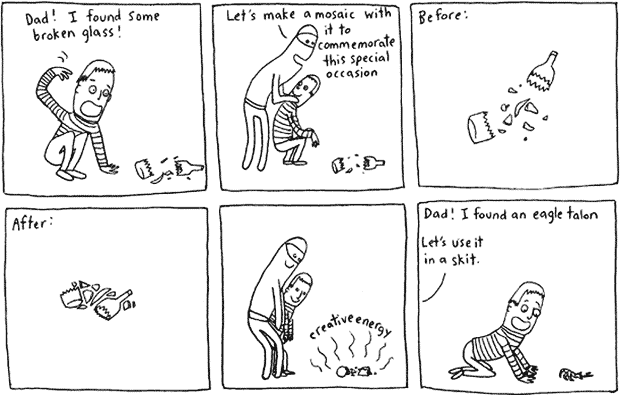 Dad! I found some
broken glass!
Let's make a mosaic with
it to
commemorate
this special
occasion
Before:
After:
creative energy
Dad! I found an eagle talon
Let's use it
in a skit.